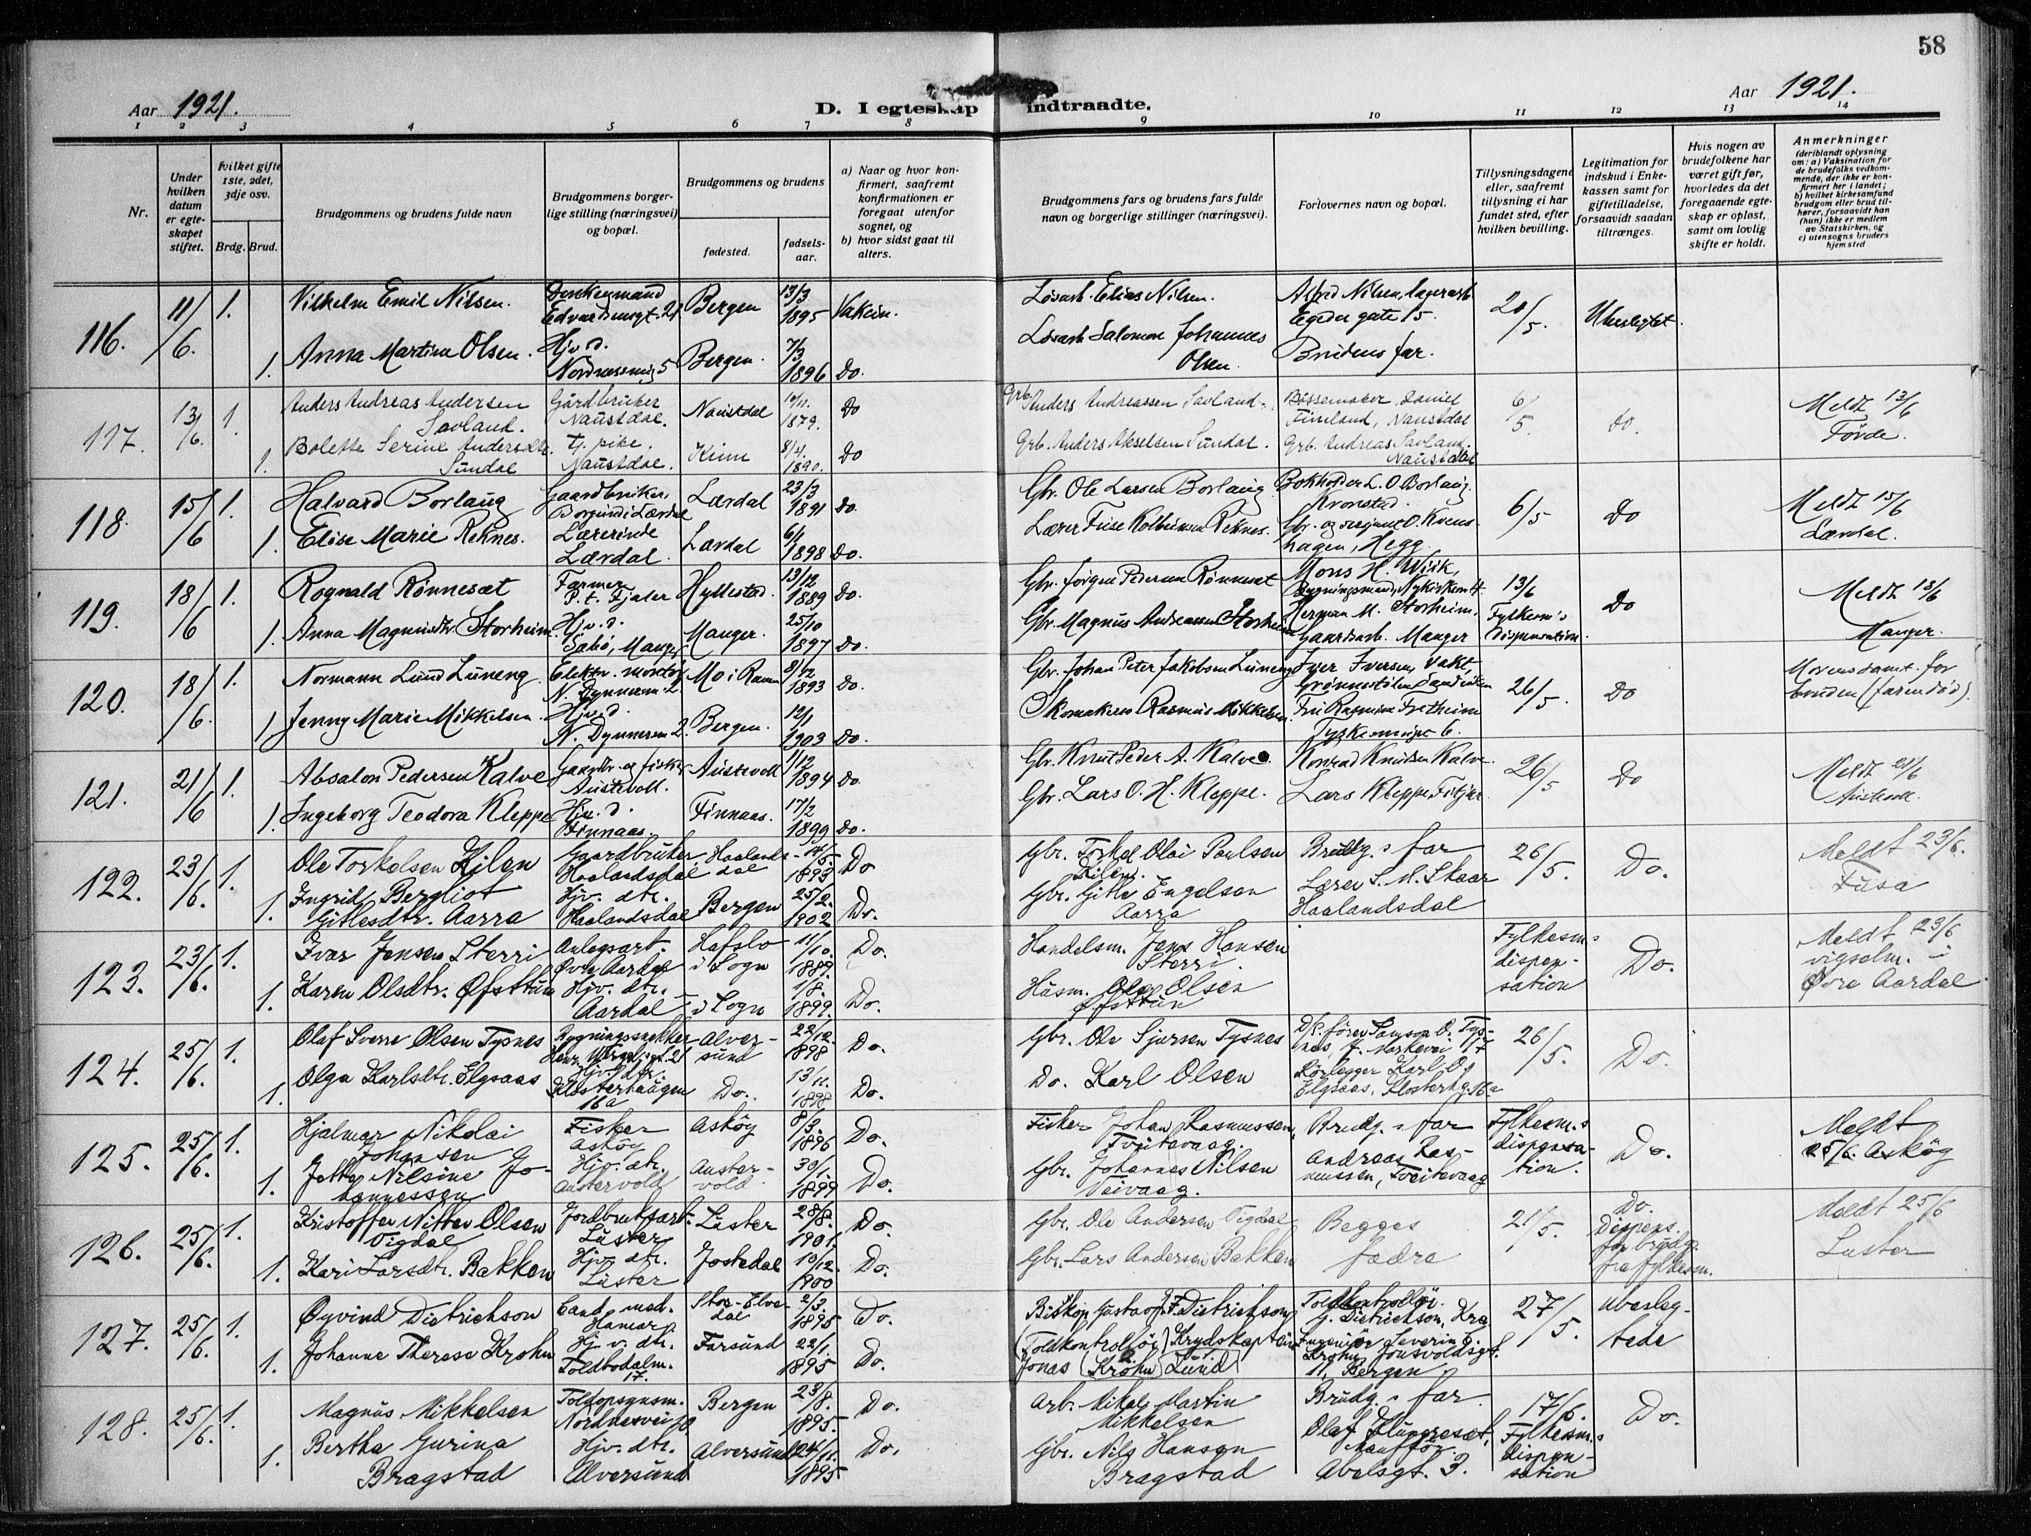 58
Aar 1921.
D. I egteskap indtraadte.
Aar 1921.
1 2 3 4 5 6 7 8 9 10 11 12 13 14
Nr.
Under hvilken datum er egteskapet stiftet.
Hvilket gifte 1ste, 2det, 3dje osv.
Brdg. Brud.
Brudgommens og brudens fulde navn
Brudgommens borgerlige stilling (næringsvei) og bopæl.
Brudgommens og brudens
fødested.
fødselsaar.
a) Naar og hvor konfirmert, saafremt konfirmationen er foregaat utenfor sognet, og
b) hvor sidst gaat til alters.
Brudgommens fars og brudens fars fulde navn og borgerlige stillinger (næringsvei).
Forlovernes navn og bopæl.
Tillysningsdagene eller, saafremt tillysning ei har fundet sted, efter hvilken bevilling.
Legitimation for indskud i Enkekassen samt for giftetilladelse, forsaavidt saadan tiltrænges.
Hvis nogen av brudefolkene har været gift før, hvorledes da det foregaaende egteskap er opløst, samt om lovlig skifte er holdt.
Anmerkninger
(deriblandt oplysning om: a) Vaksination for de brudefolks vedkommende, der ikke er konfirmert her i landet; b) hvilket kirkesamfund brudgom eller brud tilhører, forsaavidt han (hun) ikke er medlem av Statskirken, og c) utensogns bruders hjemsted
116. 11/6 1. Vilhelm Emil Nilsen. Edvardsensgt. 21 Bergen 13/3 1895 Løsarb. Elias Nilsen. Alfred Nilsen, lagerarb. Egedes gate 15. 20/5.
1. Anna Martine Olsen. Hjv. d. Bergen. 7/3 1896 Do. Løsarb. Salomon Johannes Olsen. Brudens far.
117. 13/6. 1. Anders Andreas Andersen Savland. Gårdbruker Naustdal. Naustdal 1879. Do Grb. Anders Andreassen Savland. Bøssemaker Daniel Fimland, Naustdal 6/5 do. Meldt 13/6 Førde.
1. Bolette Serine Andersdtr. Sundal Tj. pike. Naustdal. Kinn 8/4. 1890. Do Grb. Anders Akselsen Sundal. Grb. Andreas Savland. Naustdal
118. 15/6 1. Halvard Borlaug Gaardbruker, Borgund i Lærdal Lærdal 23/3 1891 Do. Gbr. Ole Larsen Borlaug Bokholder L. O. Borlaug. Kronstad. 6/5 Do Meldt 15/6 Lærdal.
1. Elise Marie Reknes. Lærerinde Lærdal. Lærdal 1898 Do. Lærer Reknes. Gbr. og sersjant O. Kvenshagen, Hegg.
119. 18/6 1. Rognald Rønnesæt Farmer P.t. Fjaler Hyllestad. 13/12 1889 Do. Gbr. Jørgen Pedersen Rønnesæt Mons H. Wiik, 13/6 Fylkesm's dispensation. Do Meldt 18/6 Manger.
1. Anna Magnusdtr. Storheim Hjv. d. Sæbø, Manger Manger. 25/10 1897 Do. Gbr. Magnus Andreassen Storheim Herman M. Storheim, Gaardarb. Manger
120. 18/6. 1. Normann Lund Luneng. Elektr. montør N. Dynnersm 2 Mo i Rana 8/12 1893 Do. Gbr. Johan Peter Jakobsen Luneng Iver Iversen, vakt, 26/5. Do Morens samt. for bruden (faren død).
1. Jenny Marie Mikkelsen. Hjv. d. N. Dynnersm 2. Bergen. 12/1 1903 Do. Skomakeren Rasmus Mikkelsen. Fru Rasmine Fretheim
121. 21/6 1. Absalon Pedersen Kalve Gaardbr. og fisker Austevoll. Austevoll 1/12 1894 Do Gbr. Knut Peder A. Kalve Konrad Knudsen Kalve. 26/5 Do Meldt 21/6 Austevoll
1. Ingeborg Teodora Kleppe Hjv. d. Finnaas. Finnaas. 17/2 1899 Do. Gbr. Lars O. H. Kleppe. Lars Kleppe, Fitjar
122. 23/6. 1. Ole Torkelsen Kilen Gaardbruker Haalandsdal Haalandsdal 1893 Do Gbr. Torkel Olai Paulsen Kilen. Brudg.s far 26/5. Do. Meldt 23/6. Fusa
1. Ingrid Bergliot Gitlesdtr. Aarra Hjv. dtr. Haalandsdal Bergen 25/2. 1902 Do. Gbr. Gitle Engelsen Aarra Lærer S. M. Skaar Haalandsdal
123. 23/6. 1. Ivar Jensen Sterri Anlegsarb. Øvre Aardal Hafslo i Sogn 11/10. 1889. Do. Handelsm. Jens Hansen Sterri. Fylkesm.s dispensation Do. Meldt 23/6 vigselm. i Øvre Aardal
1. Karen Olsdtr. Øfsttun Hjv. dtr. Aardal i Sogn 1/8. 1899. Do. Husm. Ole Olsen Øfsttun
124. 25/6. 1. Olaf Sverre Olsen Tysnes Alversund 22/12. 1898 Do. Gbr. Ole Sjursen Tysnes 26/5. Do.
1. Olga Karlsdtr. Elgsaas Hjv. dtr. Klosterhaugen 16a Do. 13/11. 1898 Do. Do. Karl Olsen Rørlegger Karl O. Elgsaas, Klosterhg. 16a
125. 25/6. 1. Hjalmar Nikolai Johansen Fisker Askøy Askøy 8/3. 1896 Do. Fisker Johan Rasmussen, Tveitevaag. Brudg.s far Fylkesm.s dispensation. Do. Meldt 25/6. Askøy
1. Nilsine Johannessen Hjv. dtr. Austervold Austervold. 30/1. 1899 Do. Gbr. Johannes Nilsen Andreas Rasmussen, Tveitevaag
126. 25/6. 1. Kristoffer Nitter Olsen Vigdal Jordbruksarb. Luster Luster 28/8. 1901. Do. Gbr. Ole Andersen Vigdal Begges fædre 21/5. Do. Dispens. for brudg. fra fylkesm. Meldt 25/6 Luster
1. Kari Larsdtr. Bakken Hjv. dtr. Luster Jostedal 19/12. 1900 Do. Gbr. Lars Andersen Bakken
127. 25/6. 1. Øyvind Dietrichson Cand. med. Hamar Stor-Elvedal 2/3. 1895 Do. Biskop Gustav J. F. Dietrichson Toldkontrollør G. Dietrichson, Kra 27/5. Uberlegtede
1. Johanne Therese Krohn Hj. v. dtr. Toldbodalm. 17. Farsund 22/1. 1895 Do. (Toldkontrollør) Jonas (Krohn) Lund Ingeniør Severin G. Krohn, Jonsvoldsgt. 11, Bergen
128. 25/6. 1. Magnus Mikkelsen Toldopsynsm. Nordnesvei Bergen 23/8. 1895. Do. Arb. Mikal Martin Mikkelsen Brudg.s far. 17/6. Fylkesm.s dispensation Do.
1. Bertha Gurina Bragstad Hjv. dtr. Alversund Alversund 24/11. 1895 Do. Gbr. Nils Hansen Bragstad Olaf Abelsgt. 3.